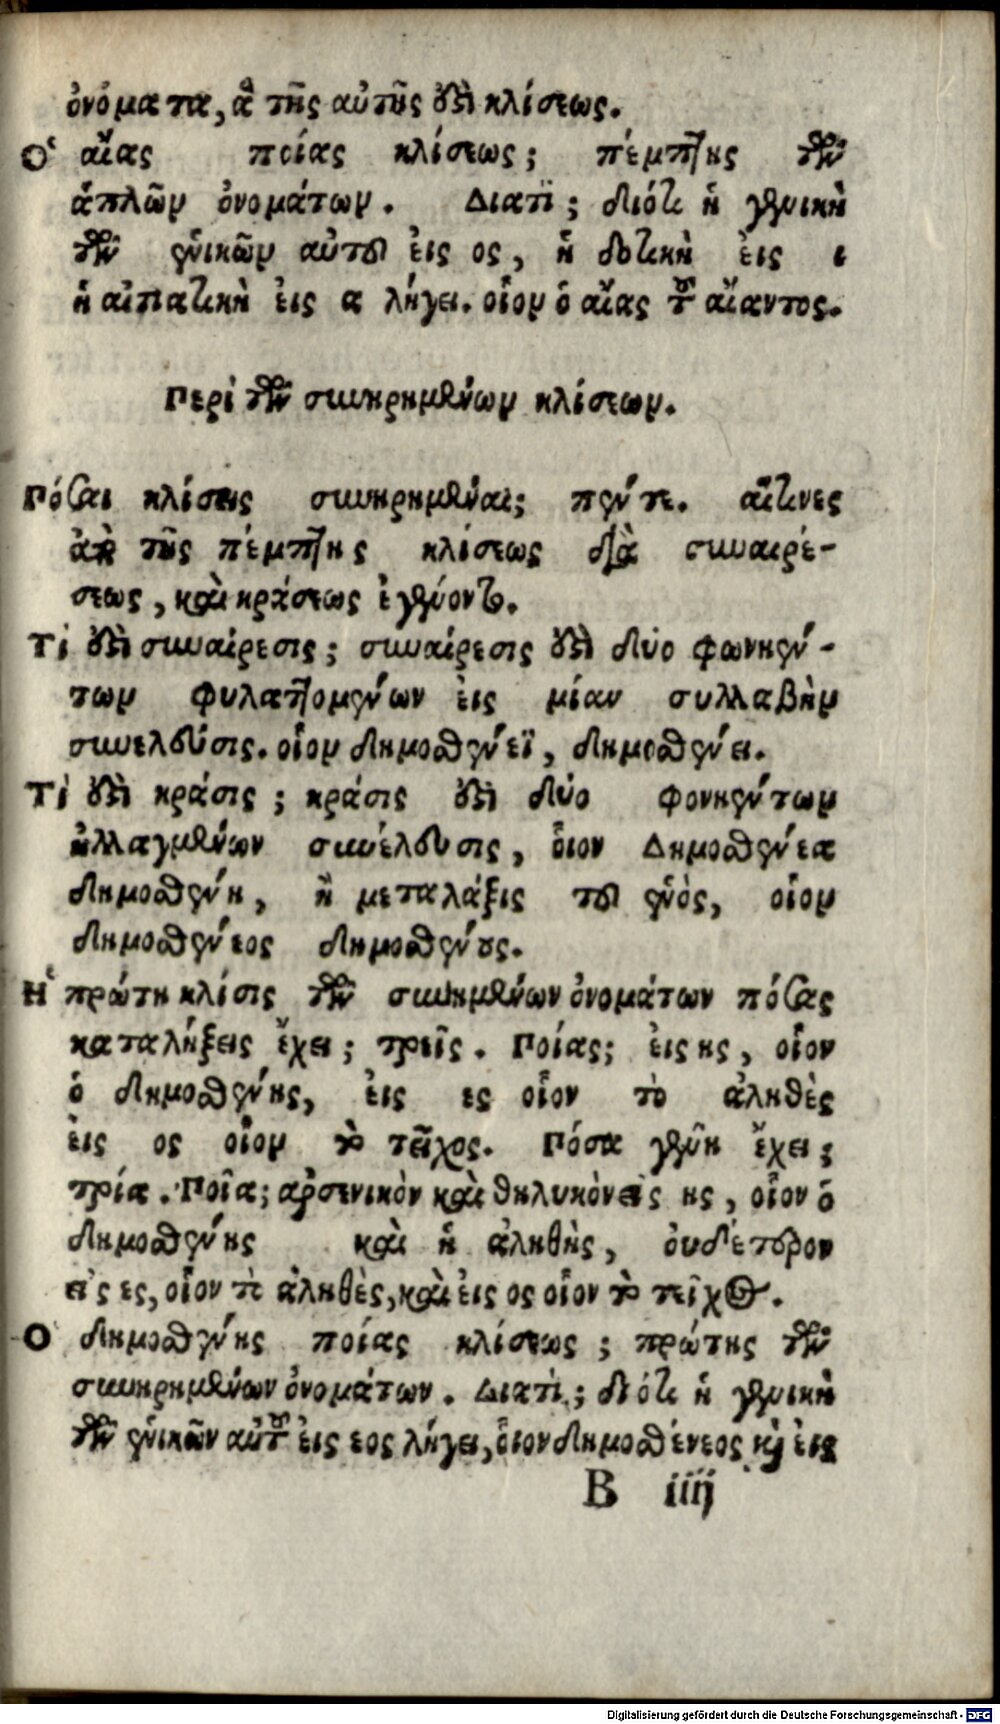 ὀνόματα, ἃ τῆς αὐτῆς ἐστὶ κλίσεως.
Ὁ αἴας ποίας κλίσεως; πέμπτης τῶν
ἁπλῶν ὀνομάτων. Διατί; διότι ἡ γενικὴ
τῶν ἑνικῶν αὐτοῦ εἰς ος, ἡ δοτικὴ εἰς ι
ἡ αἰτιατικὴ εἰς α λήγει. οἷον ὁ αἴας τοῦ αἴαντος.
Περὶ τῶν συνῃρημένων κλίσεων.
Πόσαι κλίσεις συνῃρημέναι; πέντε. αἵτινες
ἀπὸ τῆς πέμπτης κλίσεως διὰ συναιρέ-
σεως, καὶ κράσεως ἐγένοντο.
Τί ἐστὶ συναίρεσις; συναίρεσις ἐστὶ δύο φωνηέν-
των φυλαττομένων εἰς μίαν συλλαβὴν
συνέλευσις. οἷον Δημοσθένεϊ, Δημοσθένει.
Τί ἐστὶ κράσις; κράσις ἐστὶ δύο φονηέντων
ἠλλαγμένων συνέλευσις, οἷον Δημοσθένεα
Δημοσθένη, ἢ μεταλάξις τοῦ ἑνὸς, οἷον
Δημοσθένεος Δημοσθένους.
Ἡ πρώτη κλίσις τῶν συνημένων ὀνομάτων πόσας
καταλήξεις ἔχει; τρεῖς. Ποίας; εἰς ης, οἷον
ὁ Δημοσθένης, εἰς ες οἷον τὸ ἀληθὲς
εἰς ος οἷον τὸ τεῖχος. Πόσα γένη ἔχει;
τρία. Ποῖα; ἀρσενικὸν καὶ θηλυκὸν εἰς ης, οἷον ὁ
Δημοσθένης καὶ ἡ ἀληθὴς, οὐδέτερον
εἰς ες, οἷον τὸ ἀληθὲς, καὶ εἰς ος οἷον τὸ τεῖχος.
Ὁ Δημοσθένης ποίας κλίσεως; πρώτης τῶν
συνῃρημένων ὀνομάτων. Διατί; διότι ἡ γενικὴ
τῶν ἑνικῶν αὐτοῦ εἰς εος λήγει, οἷον Δημοσθένεος καὶ εἰς
B iiij
Digitalisierung gefördert durch die Deutsche Forschungsgemeinschaft - DFG